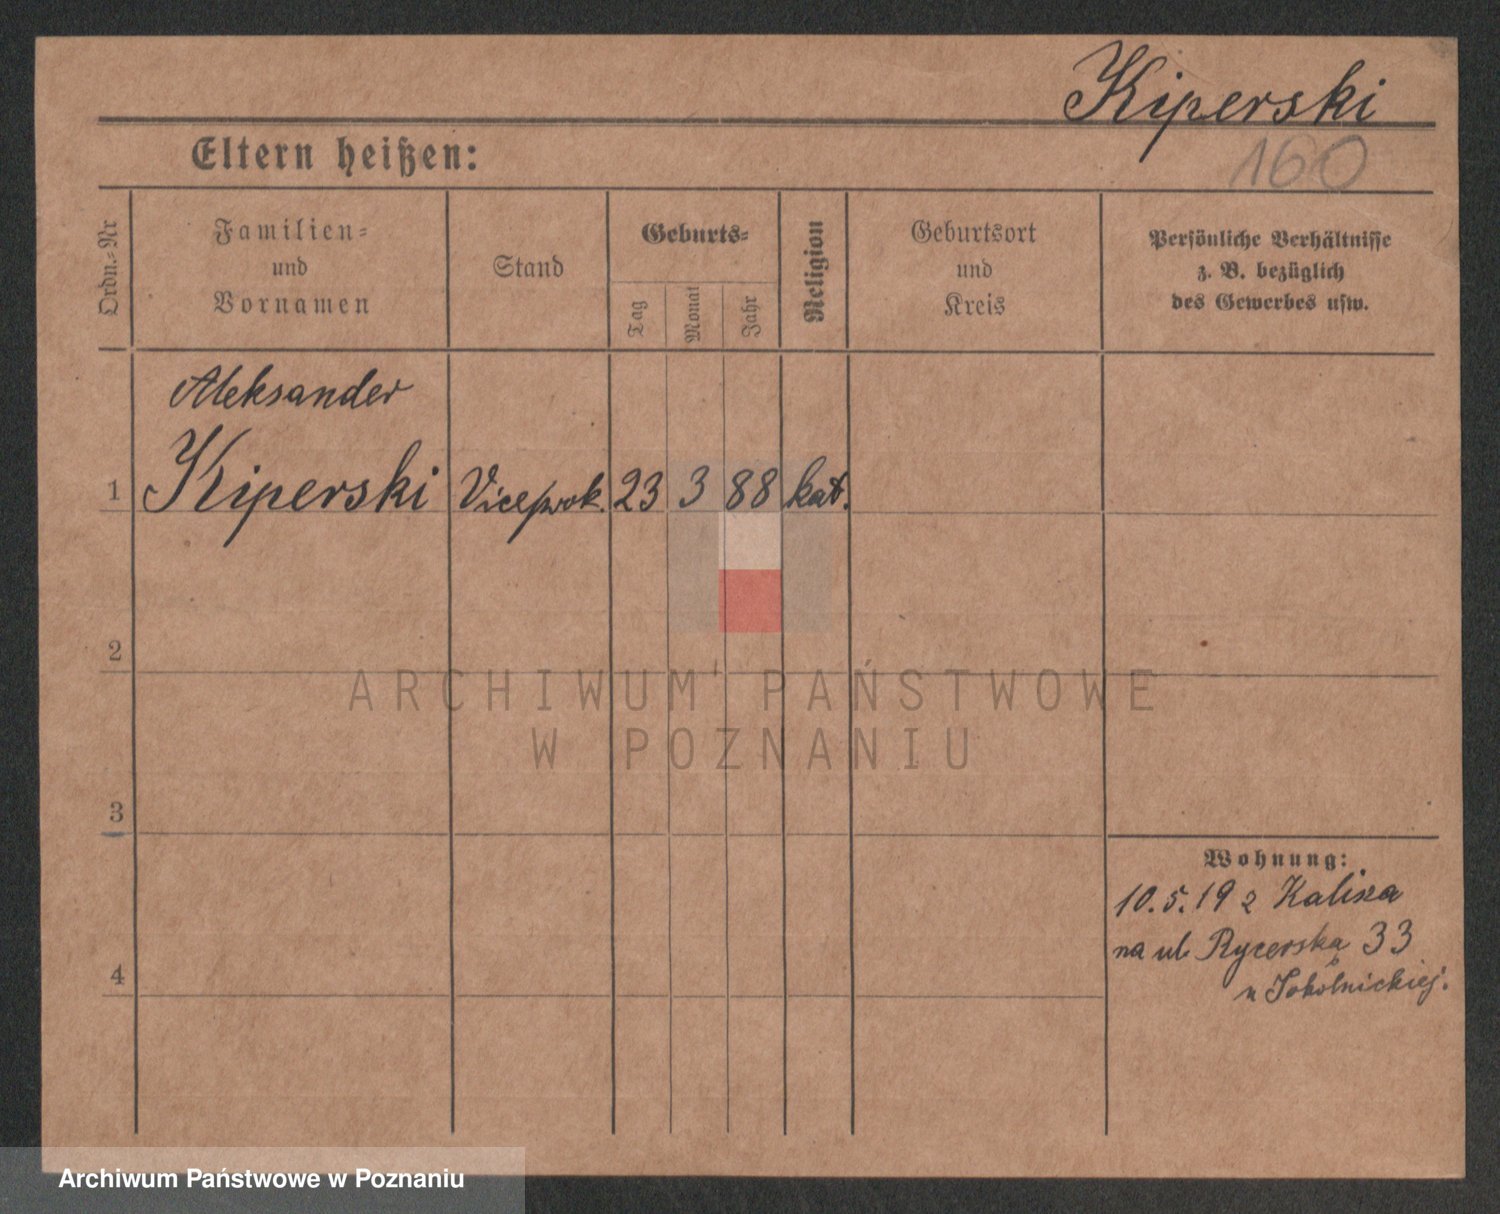 Kiperski
160
Eltern heißen:
Ordn.-Nr
Familien-
und
Vornamen
Stand
Geburts-
Tag
Monat
Jahr
Religion
Geburtsort
und
Kreis
Persönliche Verhältnisse
z. B. bezüglich
des Gewerbes usw.
Aleksander
1 Kiperski Viceprok. 23 3 88 kat.
2
3
4
ARCHIWUM PAŃSTWOWE
W POZNANIU
Wohnung:
10.5.19 z Kalisza
na ul. Rycerską 33
u Sokolnickiej.
Archiwum Państwowe w Poznaniu